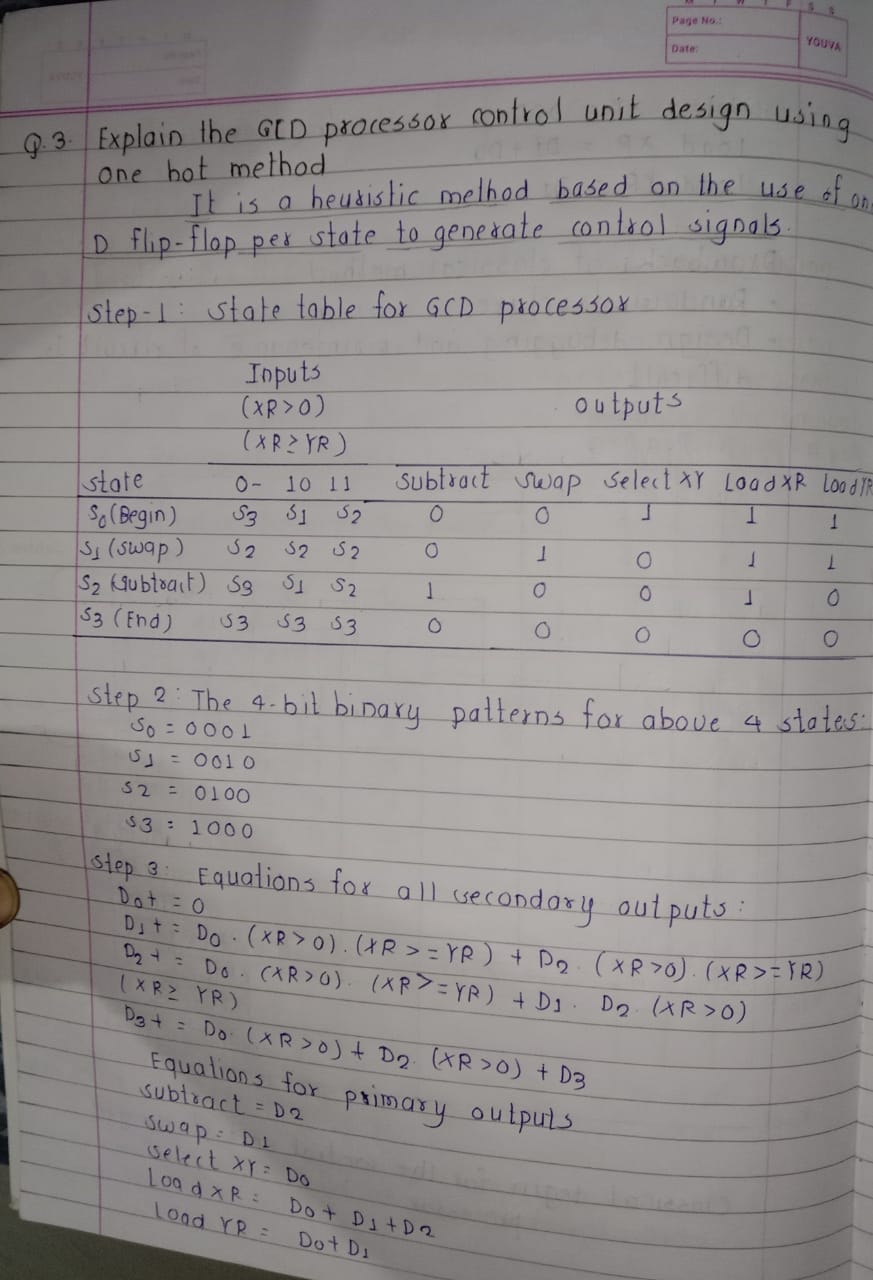 Page No.:
Date:
YOUVA
Q.3. Explain the GCD processor control unit design using
one hot method
It is a heuristic method based on the use of one
D flip-flop per state to generate control signals.
Step-1: State table for GCD processor
Inputs
(XR>0) outputs
(XR≥YR)
state 0- 10 11 Subtract Swap Select XY Load XR Load YR
S0 (Begin) S3 S1 S2 0 0 1 1 1
S1 (swap) S2 S2 S2 0 1 0 1 1
S2 (Subtract) S3 S1 S2 1 0 0 1 0
S3 (End) S3 S3 S3 0 0 0 0 0
Step 2: The 4-bit binary patterns for above 4 states:
S0 = 0001
S1 = 0010
S2 = 0100
S3 = 1000
Step 3: Equations for all secondary outputs:
D0+ = 0
D1+ = D0 . (XR>0) . (XR >= YR) + D2 . (XR>0) . (XR>=YR)
D2+ = D0 . (XR>0) . (XR>=YR) + D1 . D2 . (XR>0)
(XR≥ YR)
D3+ = D0. (XR>0) + D2. (XR>0) + D3
Equations for primary outputs
subtract = D2
swap = D1
select XY = D0
Load XR = D0 + D1 + D2
Load YR = D0 + D1